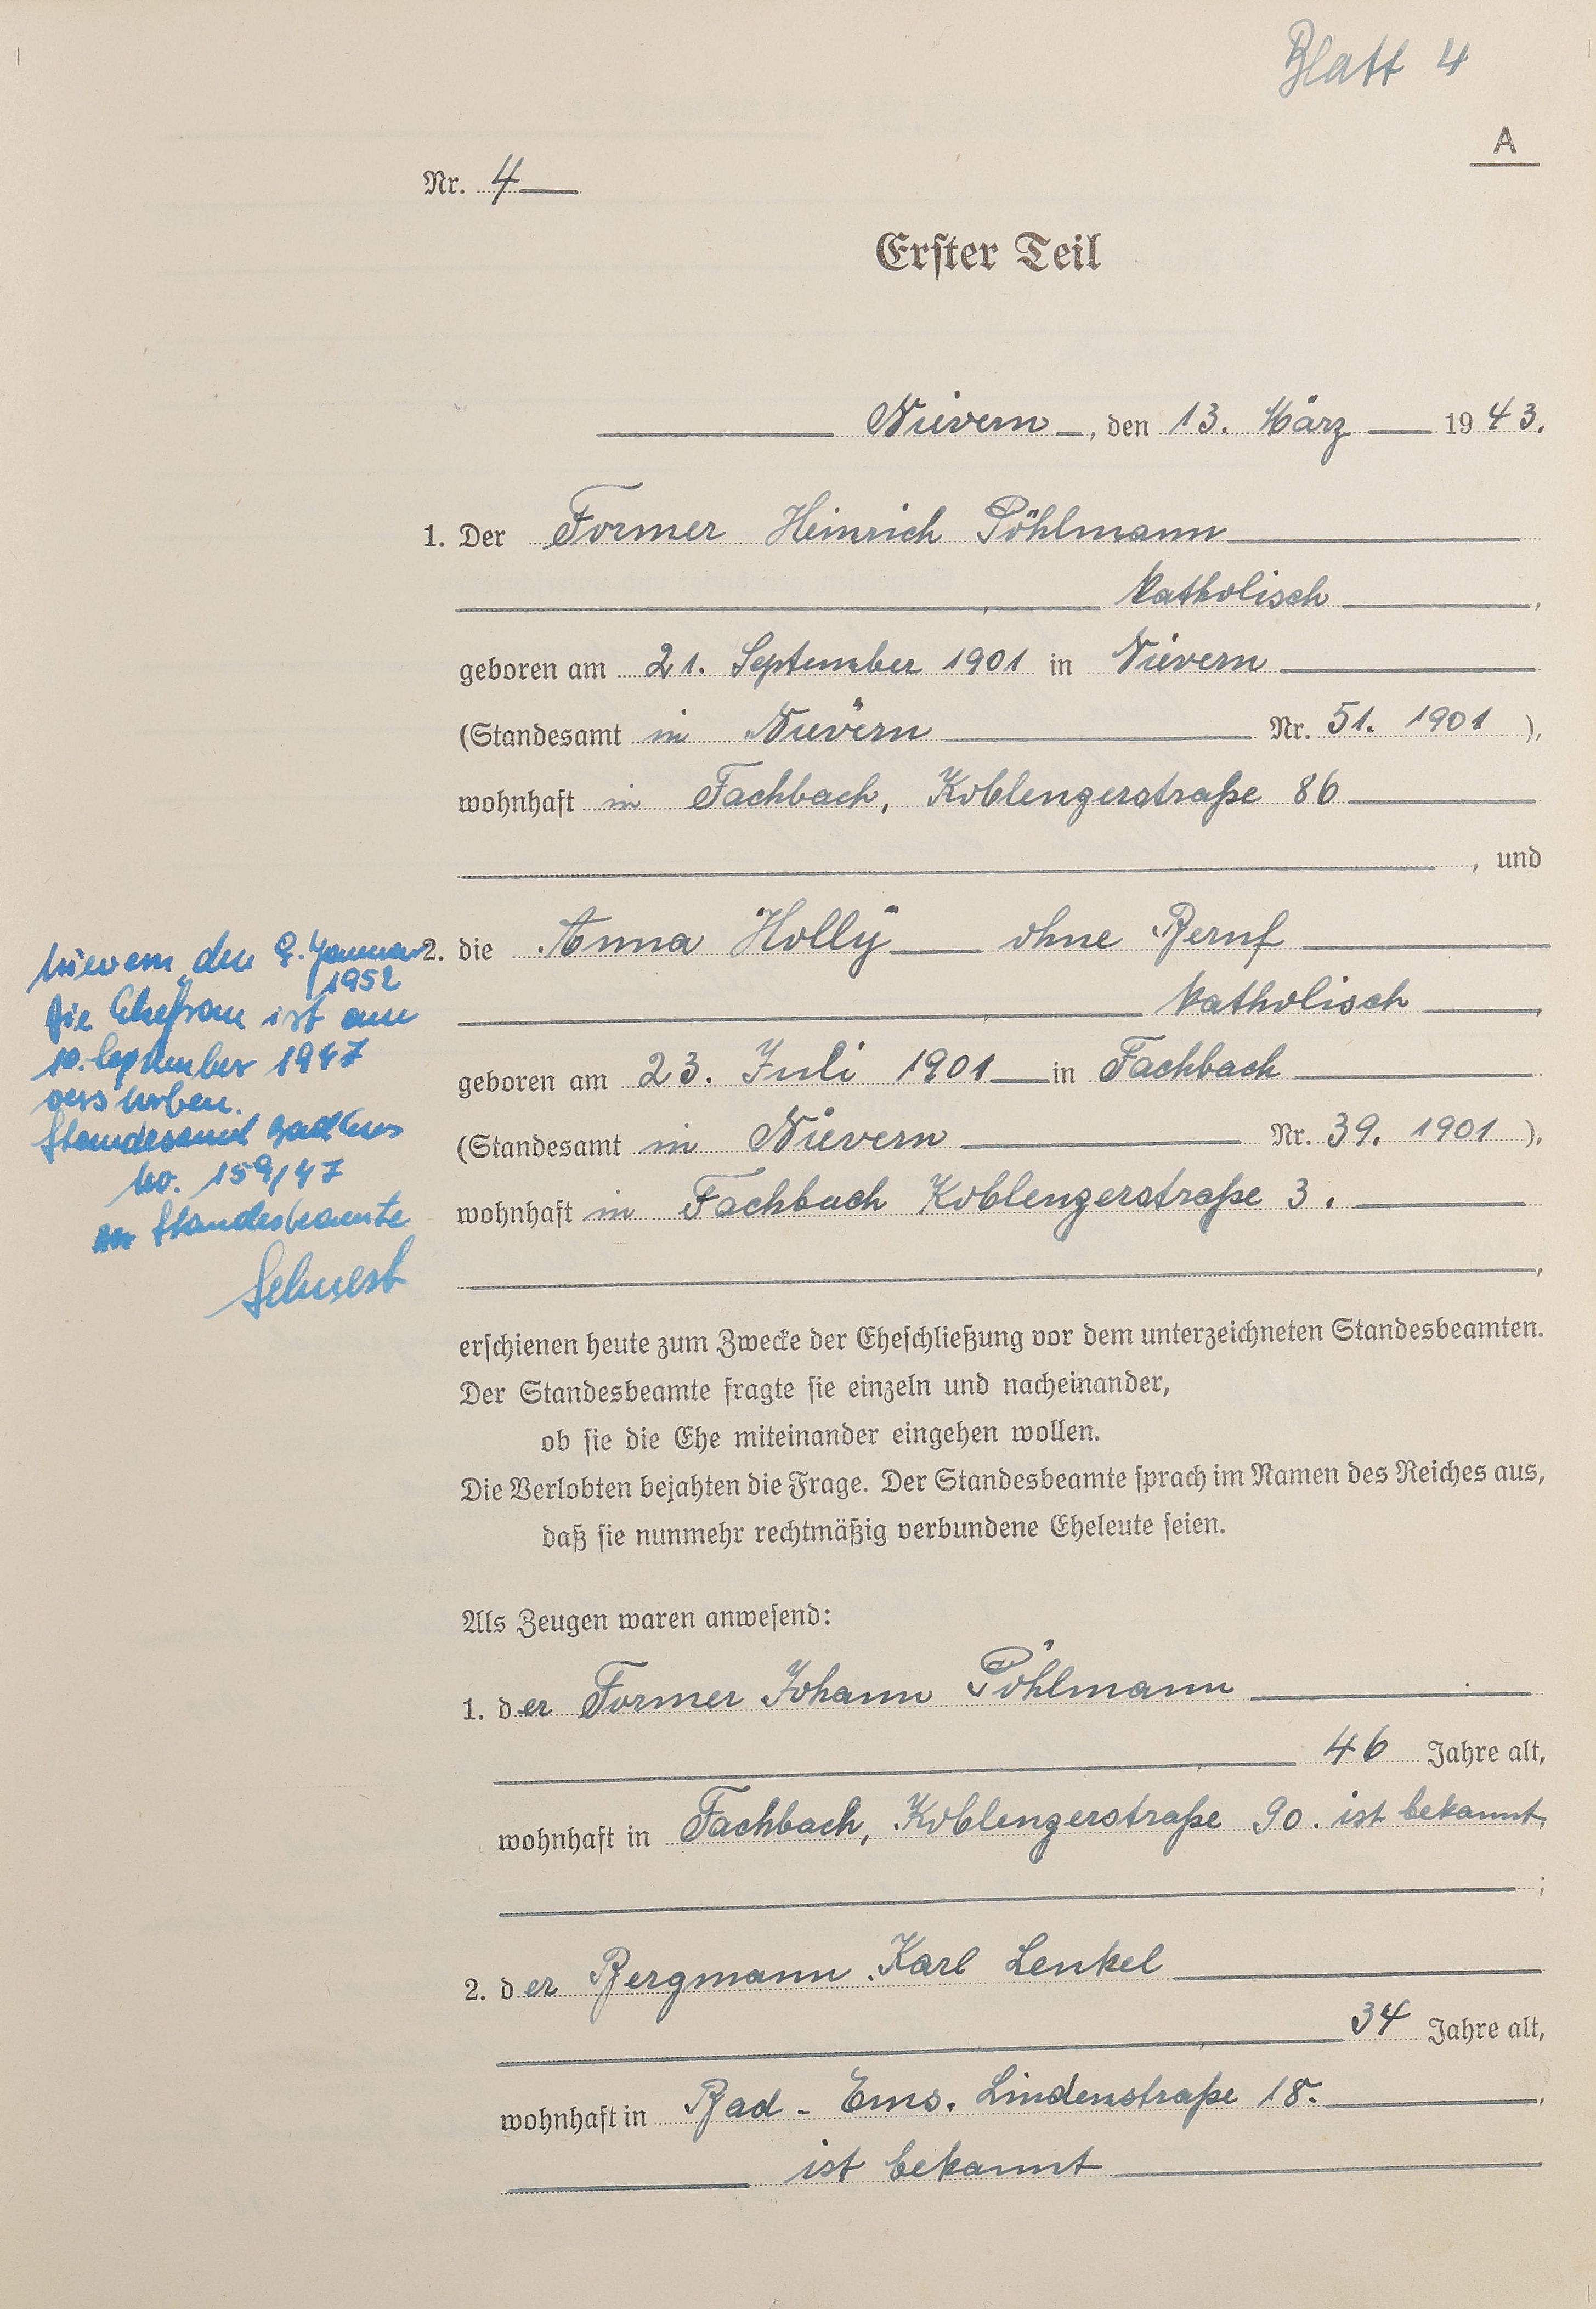 Blatt 4
A
Nr. 4
Erster Teil
Nievern, den 13. März 1943.
1. Der Former Heinrich Pöhlmann
katholisch,
geboren am 21. September 1901 in Nievern
(Standesamt in Nievern Nr. 51. 1901),
wohnhaft in Fachbach, Koblenzerstraße 86
, und
2. die Anna Holly ohne Beruf
katholisch,
geboren am 23. Juli 1901 in Fachbach
(Standesamt in Nievern Nr. 39. 1901),
wohnhaft in Fachbach Koblenzerstraße 3.
Nievern, den 9. Januar
1952
Die Ehefrau ist am
10. September 1947
verstorben.
Standesamt Bad Ems
No. 159/47
Der Standesbeamte
erschienen heute zum Zwecke der Eheschließung vor dem unterzeichneten Standesbeamten.
Der Standesbeamte fragte sie einzeln und nacheinander,
ob sie die Ehe miteinander eingehen wollen.
Die Verlobten bejahten die Frage. Der Standesbeamte sprach im Namen des Reiches aus,
daß sie nunmehr rechtmäßig verbundene Eheleute seien.
Als Zeugen waren anwesend:
1. der Former Johann Pöhlmann
46 Jahre alt,
wohnhaft in Fachbach, Koblenzerstraße 90. ist bekannt,
;
2. der Bergmann Karl Lenkel
34 Jahre alt,
wohnhaft in Bad-Ems. Lindenstraße 18.
ist bekannt